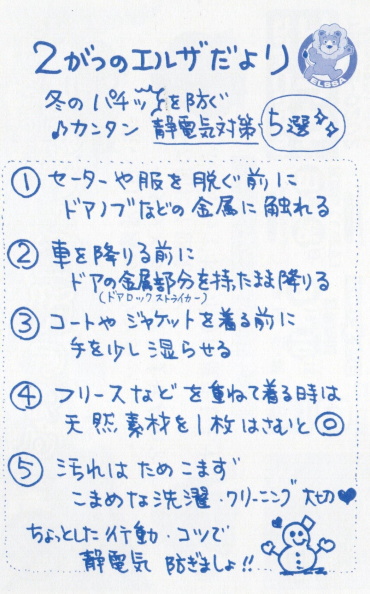 2がつのエルザだより
ELSA
冬のパチッを防ぐ
♪カンタン 静電気対策 5選
① セーターや服を脱ぐ前に
ドアノブなどの金属に触れる
② 車を降りる前に
ドアの金属部分を持ったまま降りる
(ドアロックストライカー)
③ コートやジャケットを着る前に
手を少し湿らせる
④ フリースなどを重ねて着る時は
天然素材を1枚はさむと◎
⑤ 汚れはためこまず
こまめな洗濯・クリーニング大切♥
ちょっとした行動・コツで
静電気 防ぎましょ!!